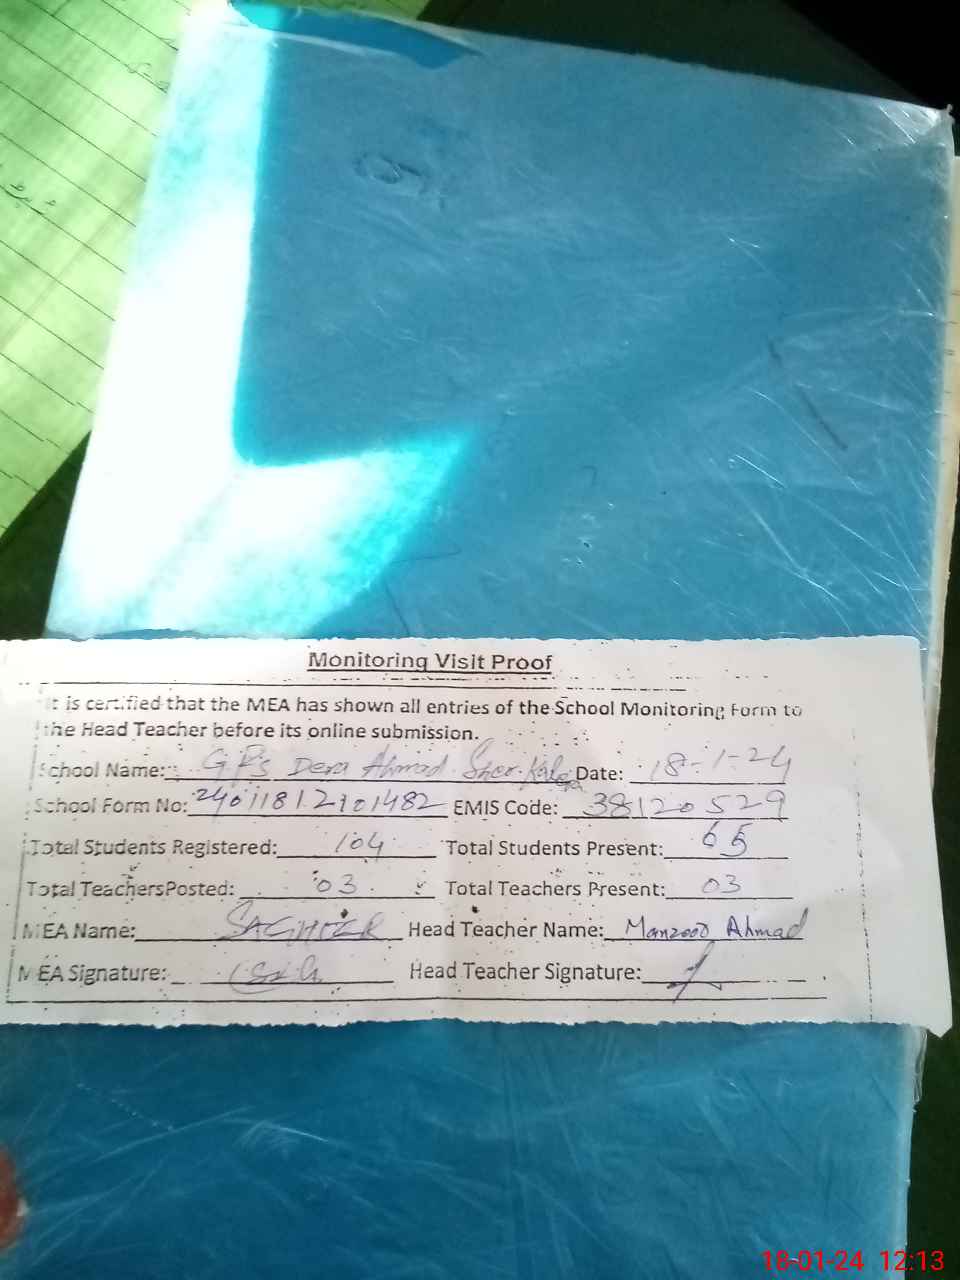 Monitoring Visit Proof
It is certified that the MEA has shown all entries of the School Monitoring Form to
the Head Teacher before its online submission.
School Name: GPS Dera Ahmad Sher Date: 18-1-24
School Form No: EMIS Code: 38120529
Total Students Registered: 104 Total Students Present: 65
Total TeachersPosted: 03 Total Teachers Present: 03
MEA Name: SAGHEER Head Teacher Name: Manzoor Ahmad
MEA Signature: Head Teacher Signature:
18-01-24 12:13